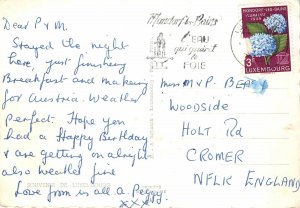 Dear P & M.
Stayed the night
here, just finishing
Breakfast and making
for Austria. Weather
Perfect. Hope you
had a Happy Birthday
& are getting on alright
also weather fine
Love from us all a Peggy
xxx
Mondorf-les-Bains
l'EAU
qui guérit le
FOIE
MONDORF-LES-BAINS
LUXEMBOURG
3F
miss M & P BE
WOODSIDE
HOLT Rd
CROMER
NFLK ENGLAND